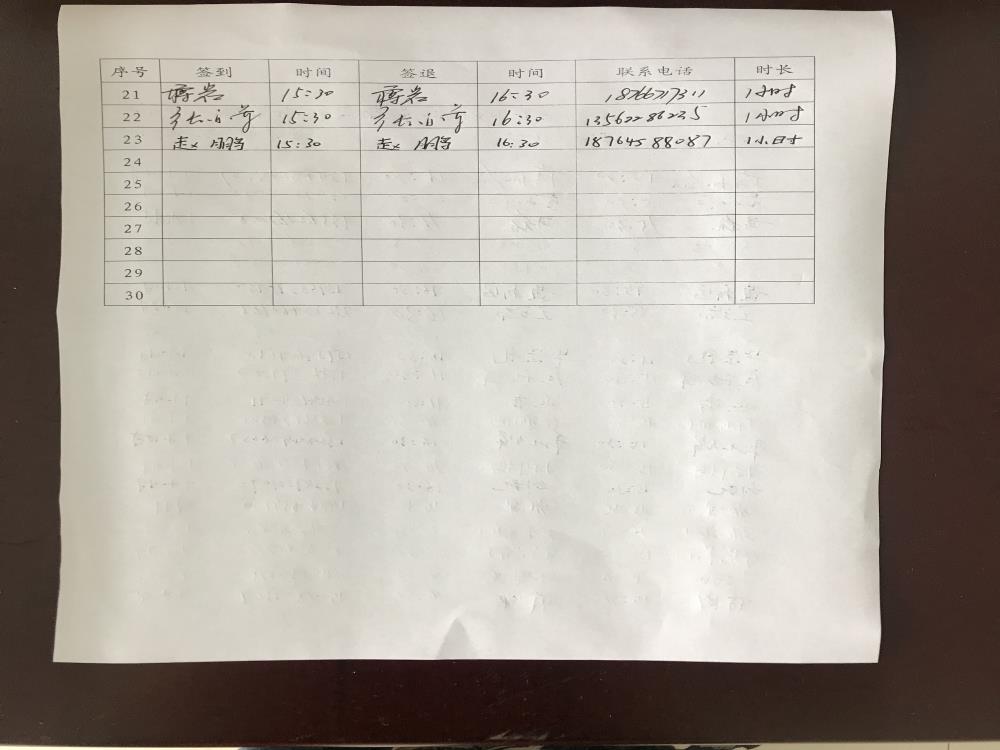 序号 签到 时间 签退 时间 联系电话 时长
21 15:30 16:30 18766717311 1小时
22 15:30 16:30 13562286235 1小时
23 赵鹏 15:30 赵鹏 16:30 18764588087 1小时
24
25
26
27
28
29
30